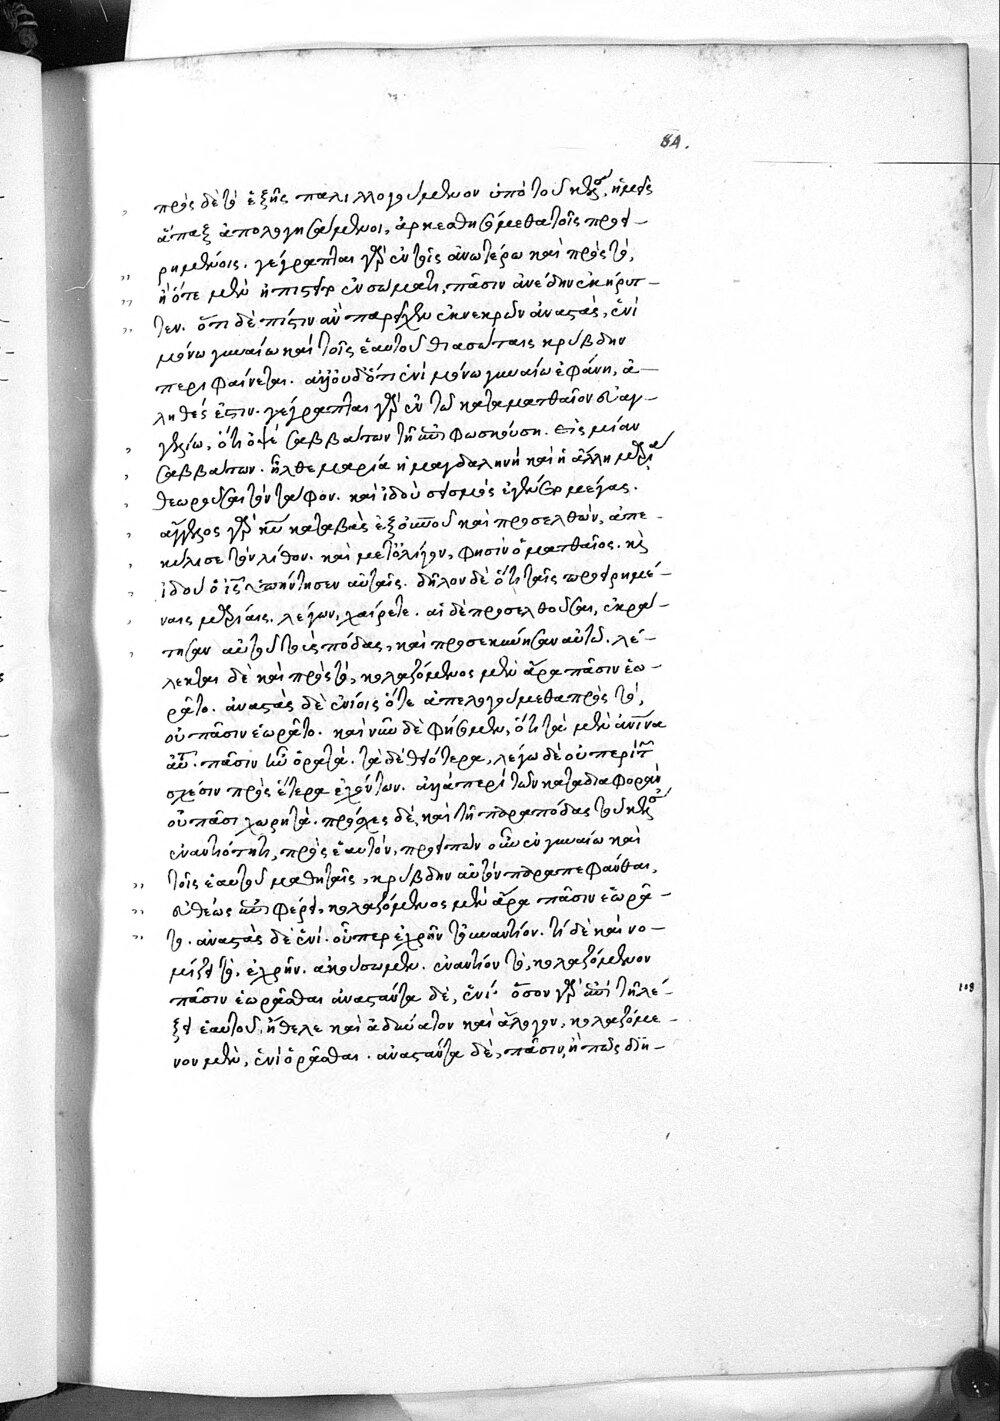 84.
πρὸς δὲ τὸ ἑξῆς παλιλλογούμενον ὑπὸ τοῦ κέλσου, ἡμεῖς
ἅπαξ ἀπολογησάμενοι, ἀρκεσθησόμεθα τοῖς προει-
ρημένοις. γέγραπται γὰρ ἐν τοῖς ἀνωτέρω καὶ πρὸς τό,
ἢ ὅτε μὲν ἠπιστεῖτο ἐν σώματι, πᾶσιν ἀνέδην ἐκήρυτ-
τεν. ὅτι δὲ πίστιν ἂν παρεῖχεν ἐκ νεκρῶν ἀναστάς, ἑνὶ
μόνω γυναίω καὶ τοῖς ἑαυτοῦ θιασώταις κρύβδην
περιφαίνεται. ἀλλ' οὐδ' ὅτι ἑνὶ μόνω γυναίω ἐφάνη, ἀ-
ληθές ἐστιν. γέγραπται γὰρ ἐν τῶ κατὰ ματθαῖον εὐαγ-
γελίω, ὅτι ὀψὲ σαββάτων τῆ ἐπιφωσκούση. εἰς μίαν
σαββάτων. ἦλθε μαρία ἡ μαγδαληνὴ καὶ ἡ ἄλλη μαρία
θεωρῆσαι τὸν τάφον. καὶ ἰδοὺ σεισμὸς ἐγένετο μέγας.
ἄγγελος γὰρ κυ καταβὰς ἐξ οὐνοῦ καὶ προσελθών, ἀπε-
κύλισε τὸν λίθον. καὶ μετ' ὀλίγον, φησὶν ὁ ματθαῖος. καὶ
ἰδοὺ ὁ ις ὑπήντησεν αὐταῖς. δῆλον δὲ ὅτι ταῖς προειρημέ-
ναις μαρίαις. λέγων, χαίρετε. αἱ δὲ προσελθοῦσαι, ἐκρά-
τησαν αὐτοῦ τοὺς πόδας, καὶ προσεκύνησαν αὐτῶ. λέ-
λεκται δὲ καὶ πρὸς τό, κολαζόμενος μὲν ἄρα πᾶσιν ἑω-
ρᾶτο. ἀναστὰς δὲ ἑνί· οἷς ὅτε ἀπελογούμεθα πρὸς τό,
οὐ πᾶσιν ἑωρᾶτο. καὶ νῦν δὲ φήσομεν, ὅτι τὰ μὲν ἀνινα
αὐτοῦ. πᾶσιν ἦν ὁρατά. τὰ δὲ θειότερα, λέγω δὲ οὐ περὶ τῶν
σχέσιν πρὸς ἕτερα ἐχόντων. ἀλλὰ περὶ τῶν κατὰ διαφορὰν
οὐ πᾶσι χωρητά. πρόσχες δὲ, καὶ τῆ παρὰ πόδας τοῦ κέλσου
ἐναντιότητι, πρὸς ἑαυτόν, προειπὼν οὖν ἐν γυναίω καὶ
τοῖς ἑαυτοῦ μαθηταῖς, κρύβδην αὐτὸν παραπεφάνθαι,
εὐθέως ἐπιφέρει, κολαζόμενος μὲν ἄρα πᾶσιν ἑωρᾶ-
το. ἀναστὰς δὲ ἑνί. οὗπερ ἐχρῆν τοὐναντίον. τί δὲ καὶ νο-
μίζει τό, ἐχρῆν. ἀκούσωμεν. ἐναντίον τό, κολαζόμενον
πᾶσιν ἑωρᾶσθαι ἀναστάντα δὲ, ἑνί. ὅσον γὰρ ἐπὶ τῆ λέ-
ξει ἑαυτοῦ, ἤθελε καὶ ἀδύνατον καὶ ἄλογον, κολαζόμε-
νον μὲν, ἑνὶ ὁρᾶσθαι. ἀναστάντα δὲ, πᾶσιν, ἢ πῶς διη-
108